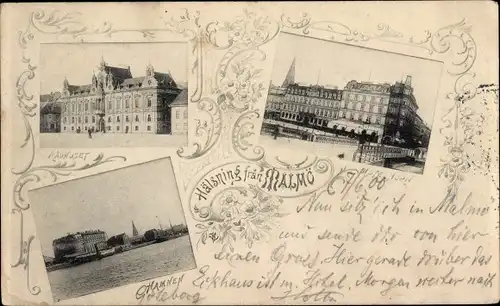 RÅDHUSET
Hälsning från MALMÖ
HAMNEN
6/7/00
Nun sitz ich in Malmö
und sende dir von hier
einen Gruß. Hier gerade drüber das
Eckhaus ist m. Hotel. Morgen weiter nach
Göteborg